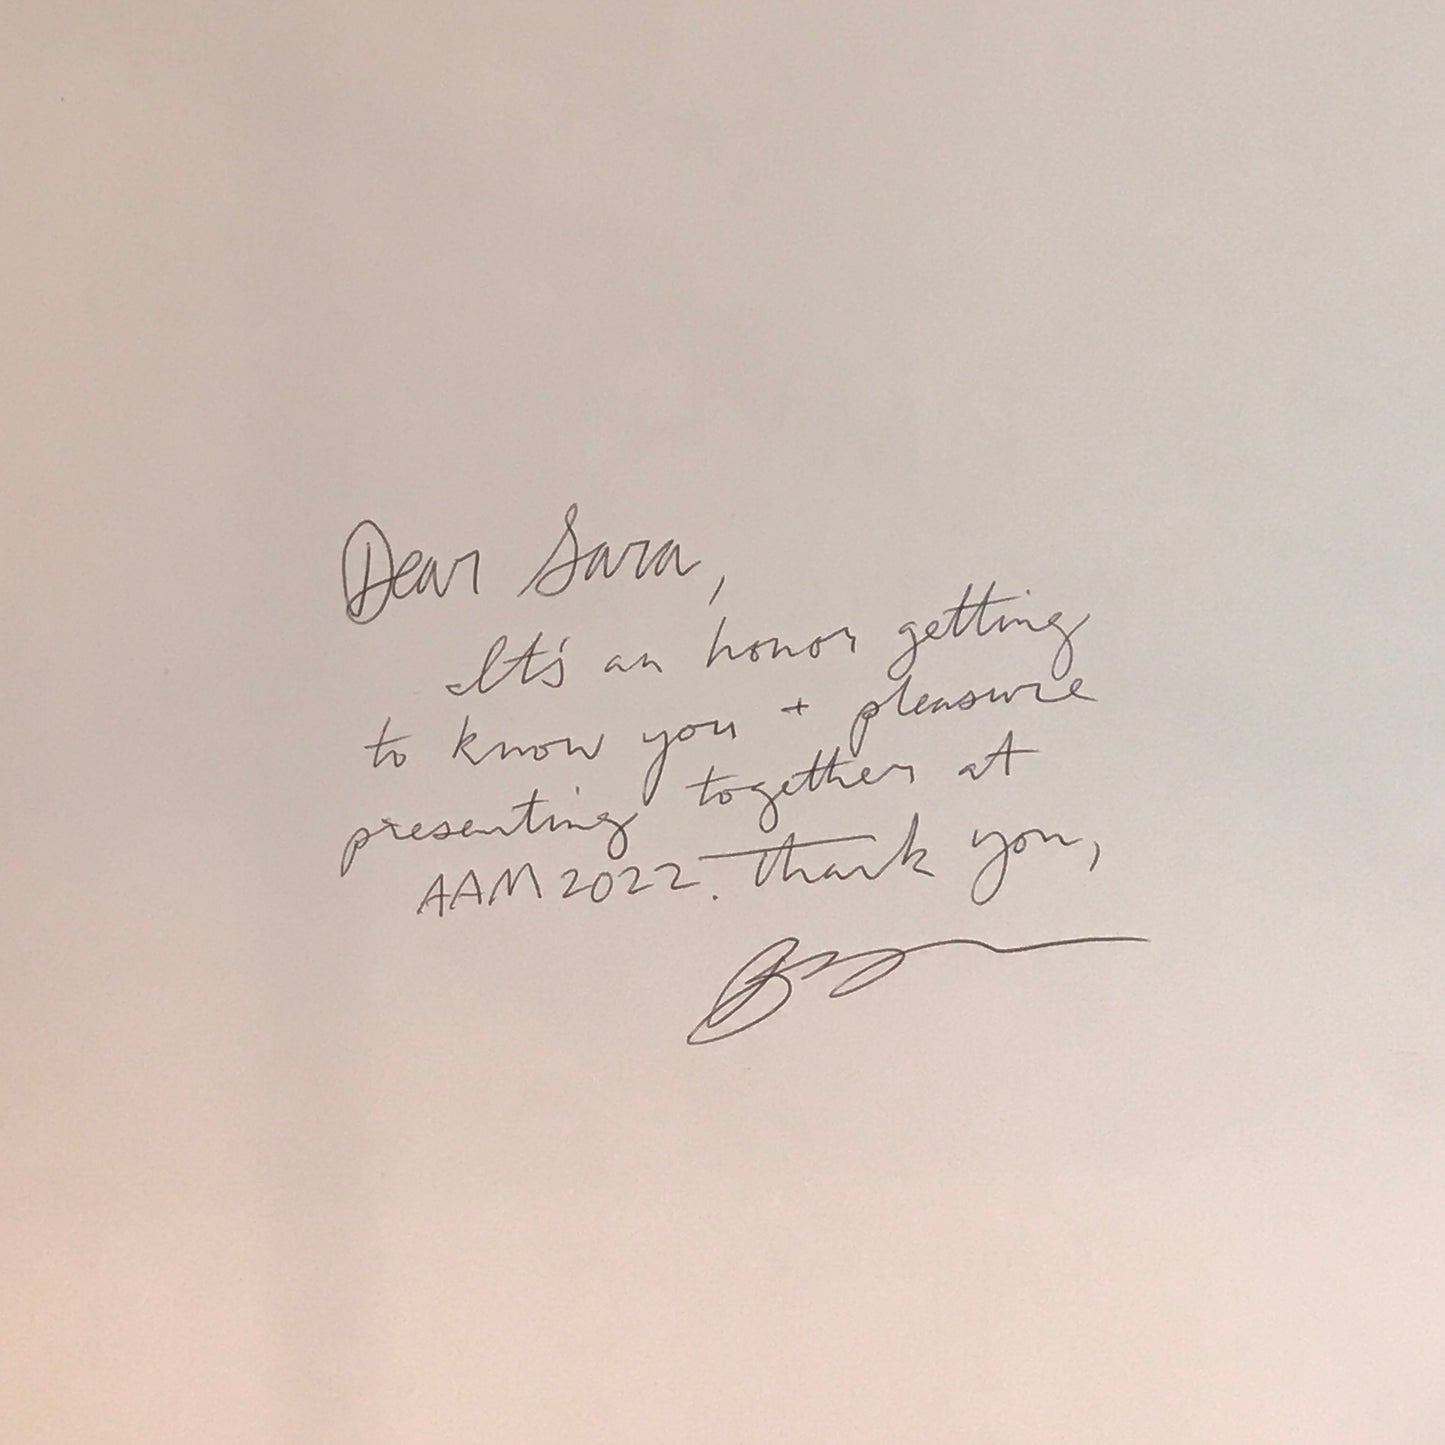 Dear Sara,
It's an honor getting
to know you + pleasure
presenting together at
AAM 2022. Thank you,